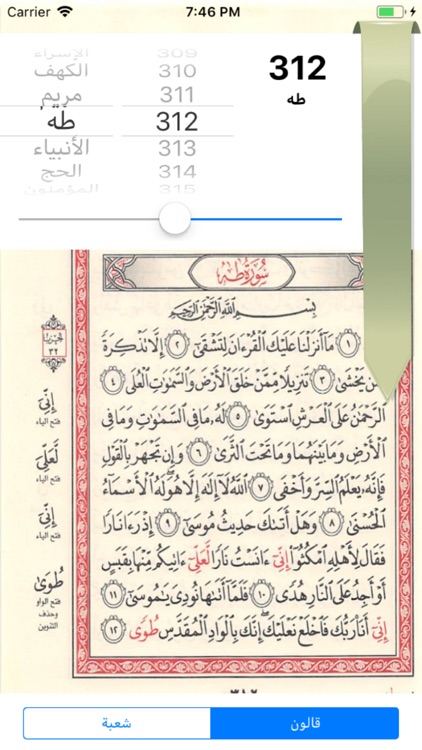 Carrier 7:46 PM
309 الإسراء
310 الكهف
311 مريم
312 طه
313 الأنبياء
314 الحج
315 المؤمنون
312
طه
سُورَةُ طه
بِسْمِ اللَّهِ الرَّحْمَٰنِ الرَّحِيمِ
١ مَا أَنزَلْنَا عَلَيْكَ الْقُرْءَانَ لِتَشْقَىٰ ٢ إِلَّا تَذْكِرَةً
يَخْشَىٰ ٣ تَنزِيلًا مِّمَّنْ خَلَقَ الْأَرْضَ وَالسَّمَٰوَٰتِ الْعُلَى ٤
الرَّحْمَٰنُ عَلَى الْعَرْشِ اسْتَوَىٰ ٥ لَهُ مَا فِي السَّمَٰوَٰتِ وَمَا فِي
الْأَرْضِ وَمَا بَيْنَهُمَا وَمَا تَحْتَ الثَّرَىٰ ٦ وَإِن تَجْهَرْ بِالْقَوْلِ
فَإِنَّهُ يَعْلَمُ السِّرَّ وَأَخْفَى ٧ اللَّهُ لَا إِلَٰهَ إِلَّا هُوَ لَهُ الْأَسْمَاءُ
الْحُسْنَىٰ ٨ وَهَلْ أَتَىٰكَ حَدِيثُ مُوسَىٰ ٩ إِذْ رَءَا نَارًا
فَقَالَ لِأَهْلِهِ امْكُثُوا إِنِّيَ ءَانَسْتُ نَارًا لَّعَلِّيَ ءَاتِيكُم مِّنْهَا بِقَبَسٍ
أَوْ أَجِدُ عَلَى النَّارِ هُدًى ١٠ فَلَمَّا أَتَىٰهَا نُودِيَ يَٰمُوسَىٰ ١١
إِنِّيَ أَنَا رَبُّكَ فَاخْلَعْ نَعْلَيْكَ إِنَّكَ بِالْوَادِ الْمُقَدَّسِ طُوَىٰ ١٢
الحزب
٣٢
إِنِّيَ
فتح الياء
لَّعَلِّيَ
فتح الياء
إِنِّيَ
فتح الياء
طُوَىٰ
فتح الواو
وحذف
التنوين
قالون
شعبة